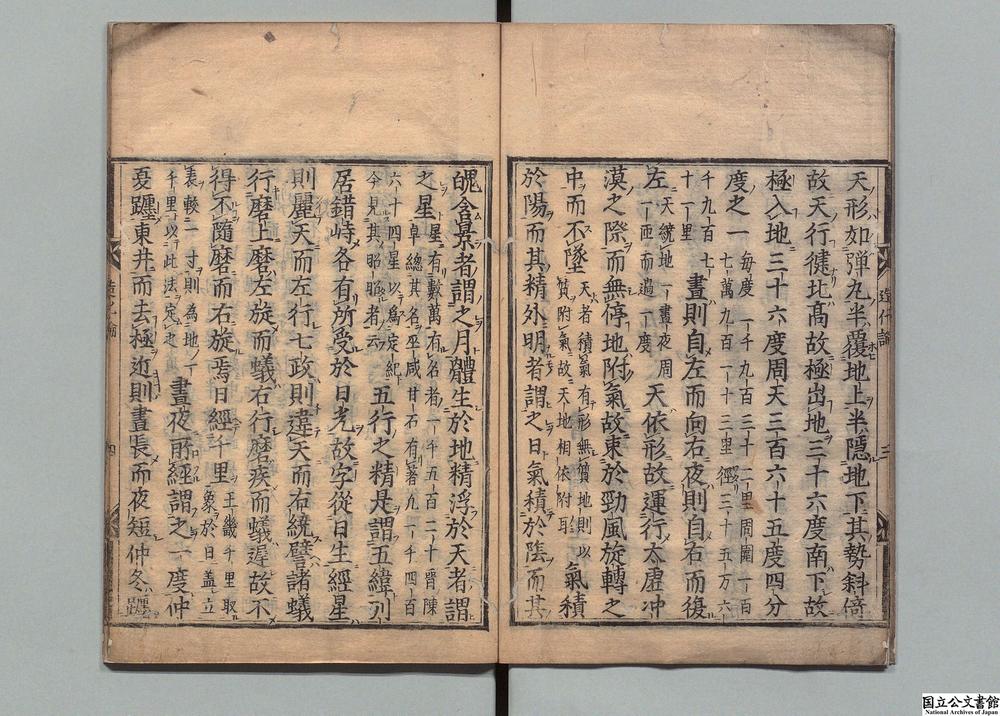 天形如弾丸半覆地上半隠地下其勢斜倚
故天行健北高故極出地三十六度南下故
極入地三十六度周天三百六十五度四分
度之一 毎度一千九百三十二里周圍一百七萬九百一十三里徑三十五万六
千九百七十一里 晝則自左而向右夜則自右而復
左 天繞地一晝夜周一匝而過一度 天依形故運行太虚冲
漠之際而無停地附氣故束於勁風旋轉之
中而不墜 天者積氣有形無質地則以質附氣故天地相依附耳 氣積
於陽而其精外明者謂之日氣積於陰而其
魄含景者謂之月體生於地精浮於天者謂
之星 星有數萬有名者一千五百二十晉陳卓總其名巫咸甘石有著凡一千四百
六十四星以爲定紀今見其昭昭者云 五行之精是謂五緯列
居錯峙各有所受於日光故字從日生經星
則麗天而左行七政則違天而右繞譬諸蟻
行磨上磨左旋而蟻右行磨疾而蟻遲故不
得不隨磨而右旋焉日經千里 王畿千里取象於日盖立
表較一寸則為地千里以此法定之 晝夜所經謂之一度仲
夏躔東井而去極近則晝長而夜短仲冬躔
造化論
三
四
国立公文書館
National Archives of Japan